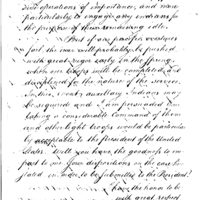 operations of importance, and more
particularly to engage my
the purpose of
But if our pacific overtures
fail, the war will probably be pushed
with great vigor early in the Spring,
when our troops will be completed, &
disciplined for the nature of the service.
In this event auxiliary Indians may
be required and I am persuaded your
taking a considerable command of them
and other light troops would be particular
ly acceptable to the President of the United
States. Will you have the goodness to im
part to me your dispositions on the case he
stated in order to be submitted to the President?
I have the honor to be
with great respect